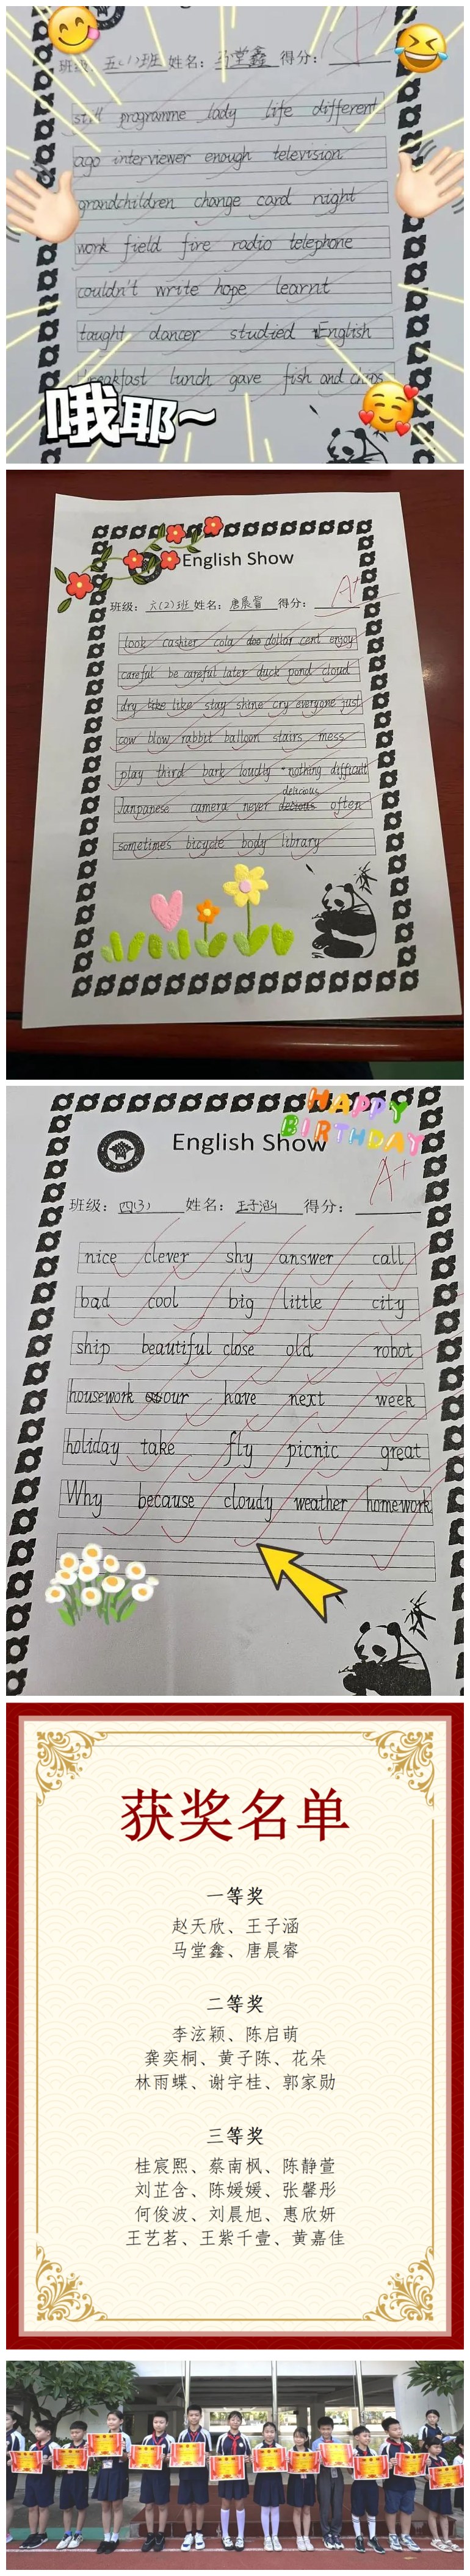 班级：五(1)班 姓名：马堂鑫 得分：
still programme lady life different
ago interviewer enough television
grandchildren change card night
work field fire radio telephone
couldn't write hope learnt
taught dancer studied English
breakfast lunch gave fish and chips
哦耶~
English Show
班级：六(2)班 姓名：唐晨睿 得分：
A+
look cashier cola dollar cent enjoy
careful be careful later duck pond cloud
dry like stay shine cry everyone just
cow blow rabbit balloon stairs mess
play third bark loudly nothing difficult
delicious
Janpanese camera never often
sometimes bicycle body library
HAPPY
BIRTHDAY
English Show
A+
班级：四(3) 姓名：王子涵 得分：
nice clever shy answer call
bad cool big little city
ship beautiful close old robot
housework our have next week
holiday take fly picnic great
Why because cloudy weather homework
获奖名单
一等奖
赵天欣、王子涵
马堂鑫、唐晨睿
二等奖
李泫颖、陈启萌
龚奕桐、黄子陈、花朵
林雨蝶、谢宇桂、郭家勋
三等奖
桂宸熙、蔡南枫、陈静萱
刘芷含、陈媛媛、张馨彤
何俊波、刘晨旭、惠欣妍
王艺茗、王紫千壹、黄嘉佳